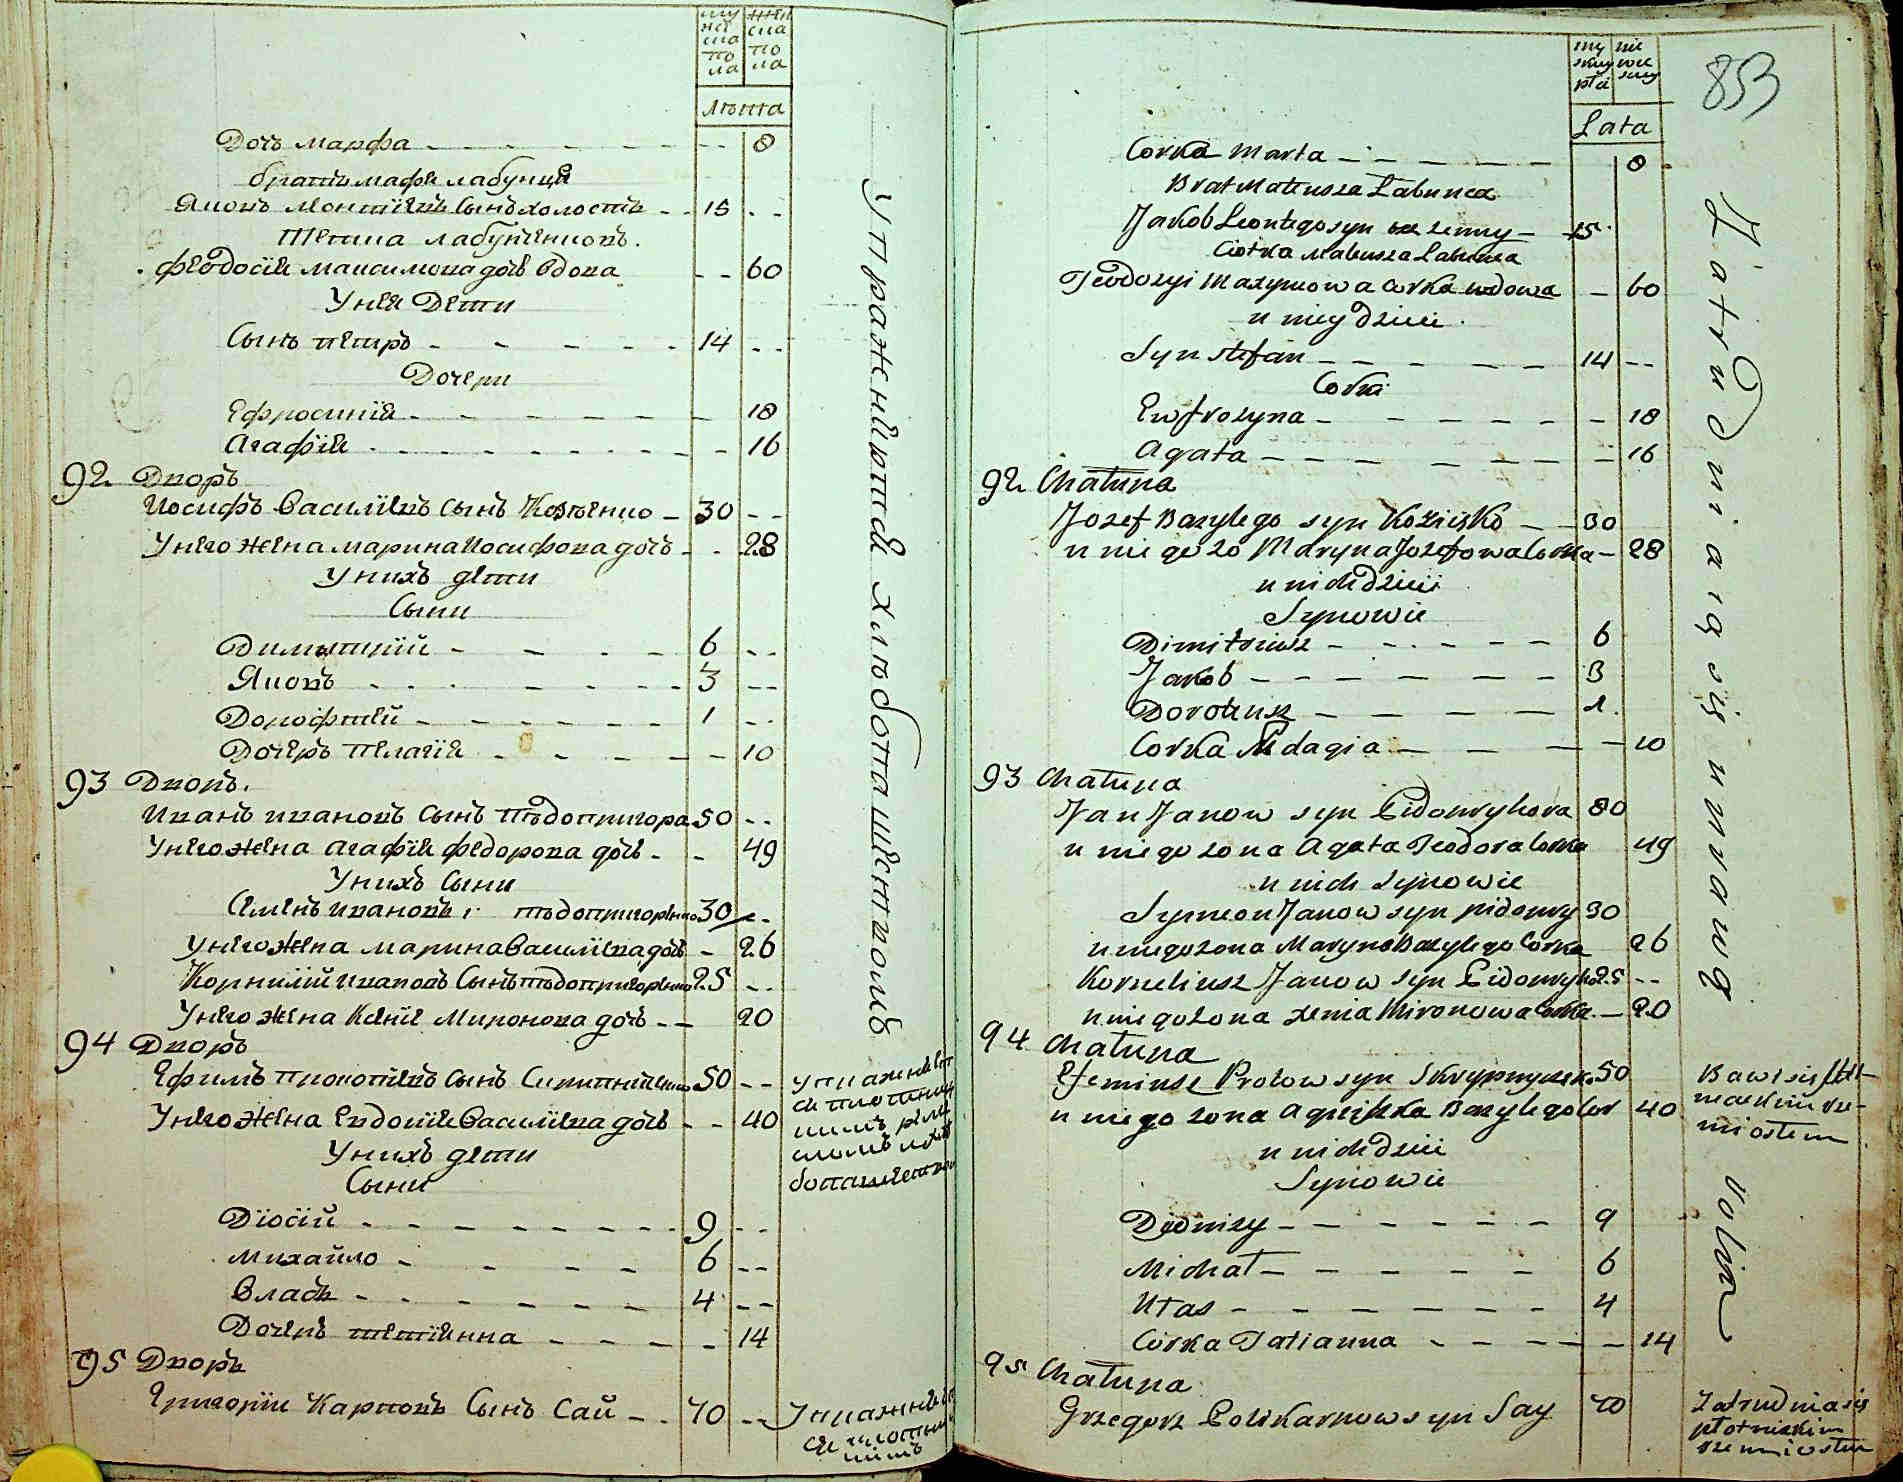 мужеска пола
женска пола
Лѣта
Дочь Марфа 8
братъ мафѣя лабунця
Яковъ Леонтіевъ Сынъ холостъ 15
Тетка лабунѣнковъ.
феодосія максимова дочь вдова 60
У нея Дети
Сынъ петръ 14
Дочери
Ефросинія 18
Агафія 16
92 Дворъ
Иосифъ Василіевъ Сынъ 30
У него жена марина Иосифова дочь 28
У нихъ дети
Сыни
Димитрій 6
Яковъ 3
Дорофтей 1
Дочеръ пелагія 10
93 Дворъ.
Иванъ ивановъ Сынъ Подопригора 50
У него жена агафія федорова дочь 49
У нихъ Сыни
Семенъ ивановъ подопригоренко 30
У него жена марина Василіева дочь 26
Корнилій ивановъ Сынъ подопригоренко 25
У него жена Ксенія Миронова дочь 20
94 Дворъ
Ефимъ прокопіевъ Сынъ 50
У него жена Евдокія Василіева дочь 40
У нихъ дети
Сыни
Діосій 9
михайло 6
Власъ 4
Дочеръ тетіянна 14
95 Дворъ
Григорій Карповъ Сынъ Сай 70
Упражняются хлѣбопашествомъ
853
męskiey płci
Lata
Corka Marta 8
Brat Mateusza Łabunca
Jakob Leontego syn bez zenny 15
Ciotka Mateusza Łabunca
Teodozyi Maxymowa corka wdowa 60
u niey dzieci
Syn stefan 14
Corki
Ewfrozyna 18
Agata 16
92 Chałupa
Jozef Bazylego syn 30
u niego zo Maryna Jozefowa Corka 28
u nich dzieci
Synowie
Dimitriusz 6
Jakob 3
Doroteusz 1
Corka Pelagia 10
93 Chałupa
Jan Janow syn 80
u niego zona Agata Teodora Corka 49
u nich synowie
Symeon Janow syn 30
u niego zona Maryna Bazylego Corka 26
Korneliusz Janow syn 25
u niego zona Xenia Mironowa Corka 20
94 Chałupa
Efemiusz Prokow syn 50
u niego zona Agnieszka Bazylego Cor 40
u nich dzieci
Synowie
9
Michał 6
Ułas 4
Corka Tatianna 14
95 Chałupa
Grzegorz Polikarpow syn Say 70
Zatrudniaią się uprawą roli
Bawi się
rzemiosłem
Zatrudnia się
płotnickim
rzemiosłem